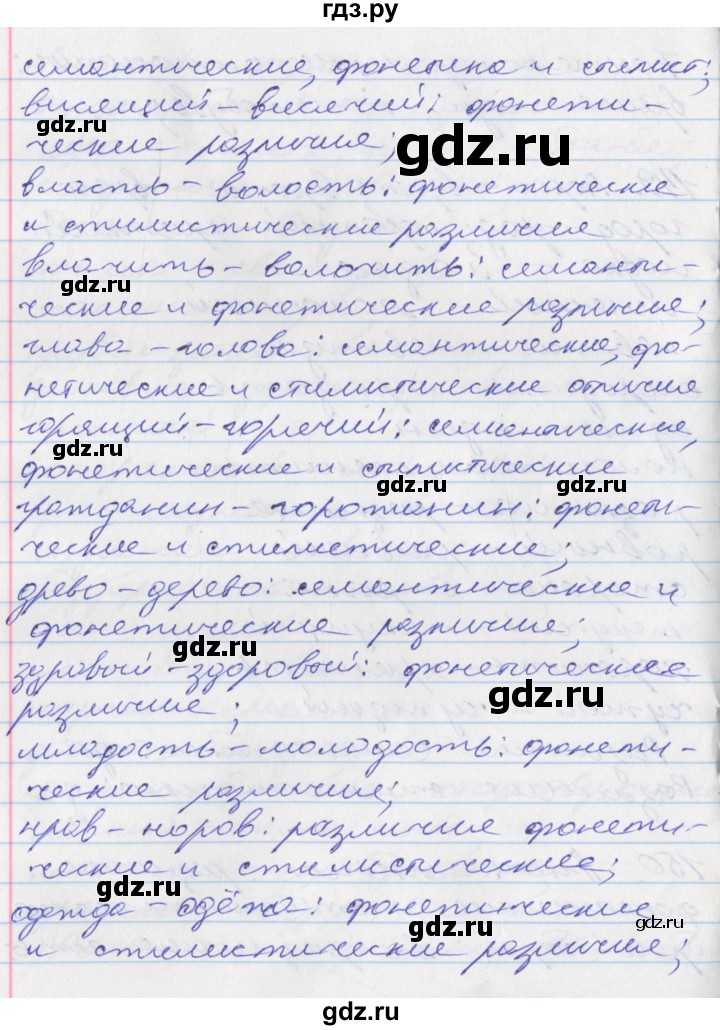 гдз.ру
семантические, фонетика и стилист;
висящий – висячий: фонети-
gdz.ru
ческие различия;
gdz.ru
власть – волость: фонетические
и стилистические различия
влачить – волочить: семанти-
gdz.ru
ческие и фонетические различие;
глава – голова: семантические, фо-
нетические и стилистические отличия
горящий – горячий: семантические,
фонетические и стилистические
gdz.ru
gdz.ru
гражданин – горожанин: фонети-
ческие и стилистические;
древо – дерево: семантические и
фонетические различие;
gdz.ru
здравый – здоровый: фонетические
gdz.ru
различие;
младость – молодость: фонети-
ческие различия;
нрав – норов: различия фонети-
ческие и стилистические;
gdz.ru
одежда – одёжа: фонетические
gdz.ru
и стилистические различия;
gdz.ru